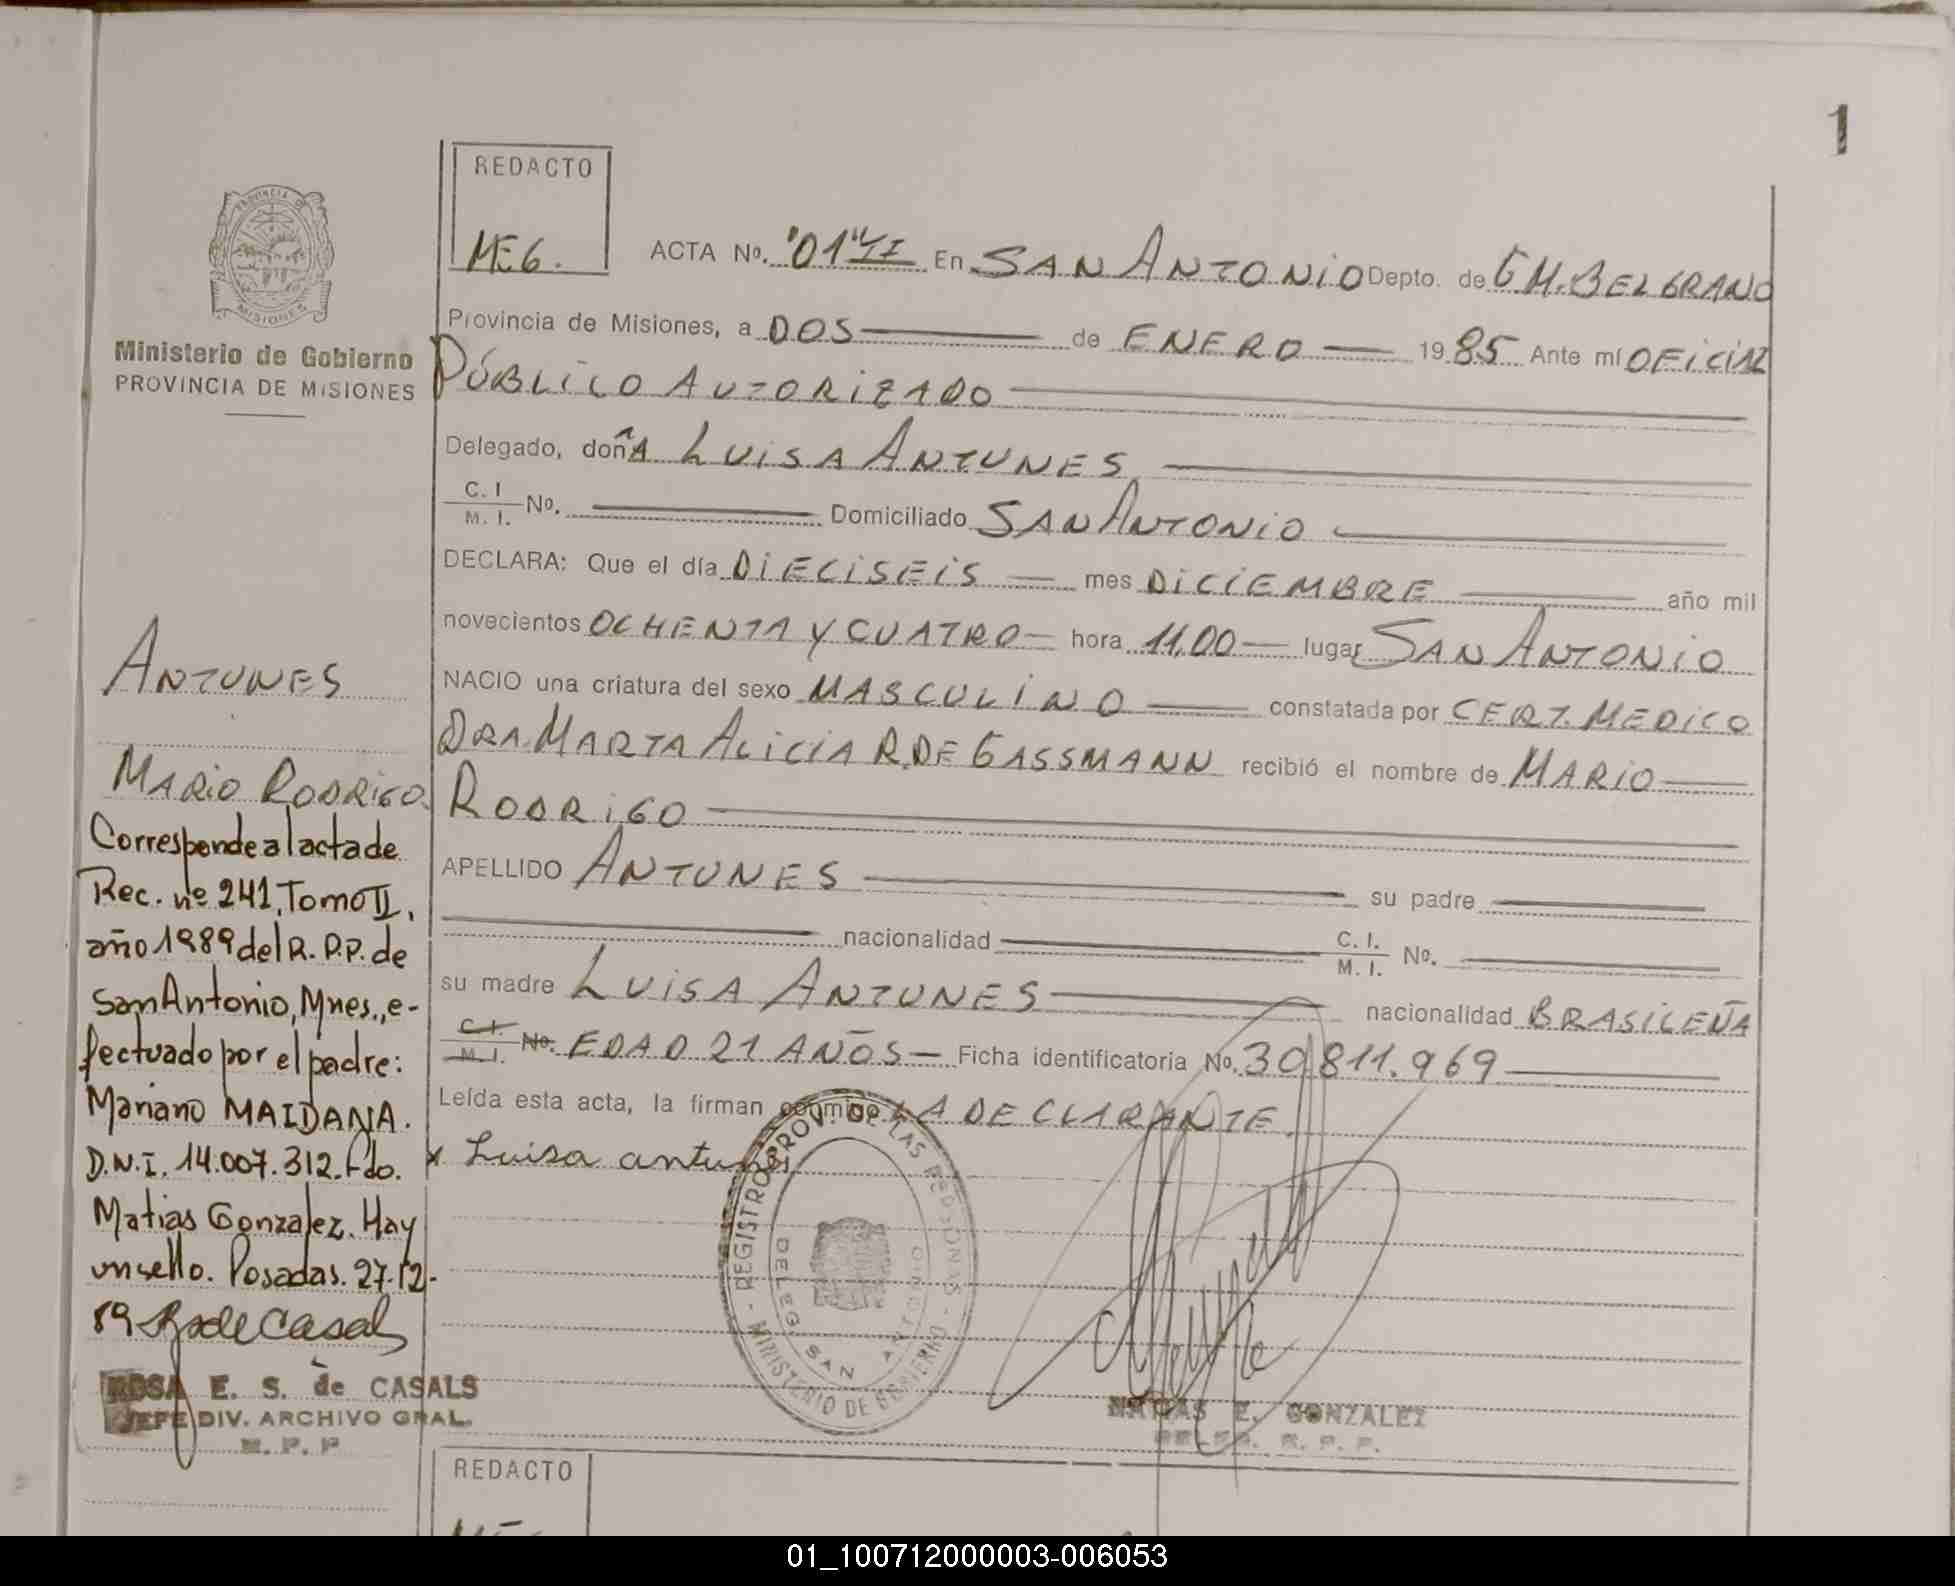 1
REDACTO
MEG.
PROVINCIA DE
MISIONES
Ministerio de Gobierno
PROVINCIA DE MISIONES
ACTA No. "01" En SAN ANTONIO Depto. de GM. BELGRANO
Provincia de Misiones, a DOS de ENERO 1985 Ante mí OFICIAL
PÚBLICO AUTORIZADO
Delegado, doñA LUISA ANTUNES
C. I
M. I. No. Domiciliado SAN ANTONIO
DECLARA: Que el día DIECISEIS mes DICIEMBRE año mil
novecientos OCHENTA Y CUATRO hora 11,00 lugar SAN ANTONIO
NACIO una criatura del sexo MASCULINO constatada por CERT. MEDICO
DRA. MARTA ALICIA R. DE GASSMANN recibió el nombre de MARIO
RODRIGO
APELLIDO ANTUNES su padre
nacionalidad C. I.
M. I. No.
su madre LUISA ANTUNES nacionalidad BRASILEÑA
C. I.
M. I. No. EDAD 21 AÑOS Ficha identificatoria No. 30.811.969
Leída esta acta, la firman LA DECLARANTE.
x Luisa antunes
ANTUNES
MARIO RODRIGO
Corresponde al acta de
Rec. nº 241, Tomo II,
año 1989 del R. P.P. de
San Antonio, Mnes., e-
fectuado por el padre:
Mariano MAIDANA.
D.N.I. 14.007.312. Fdo.
Matias Gonzalez. Hay
un sello. Posadas. 27-12-
89 R de Casals
ROSA E. S. de CASALS
JEFE DIV. ARCHIVO GRAL.
R. P. P
REGISTRO PROV. DE LAS PERSONAS
MINISTERIO DE GOBIERNO
DELEG. SAN ANTONIO
MATIAS E. GONZALEZ
R. P. P.
REDACTO
01_100712000003-006053